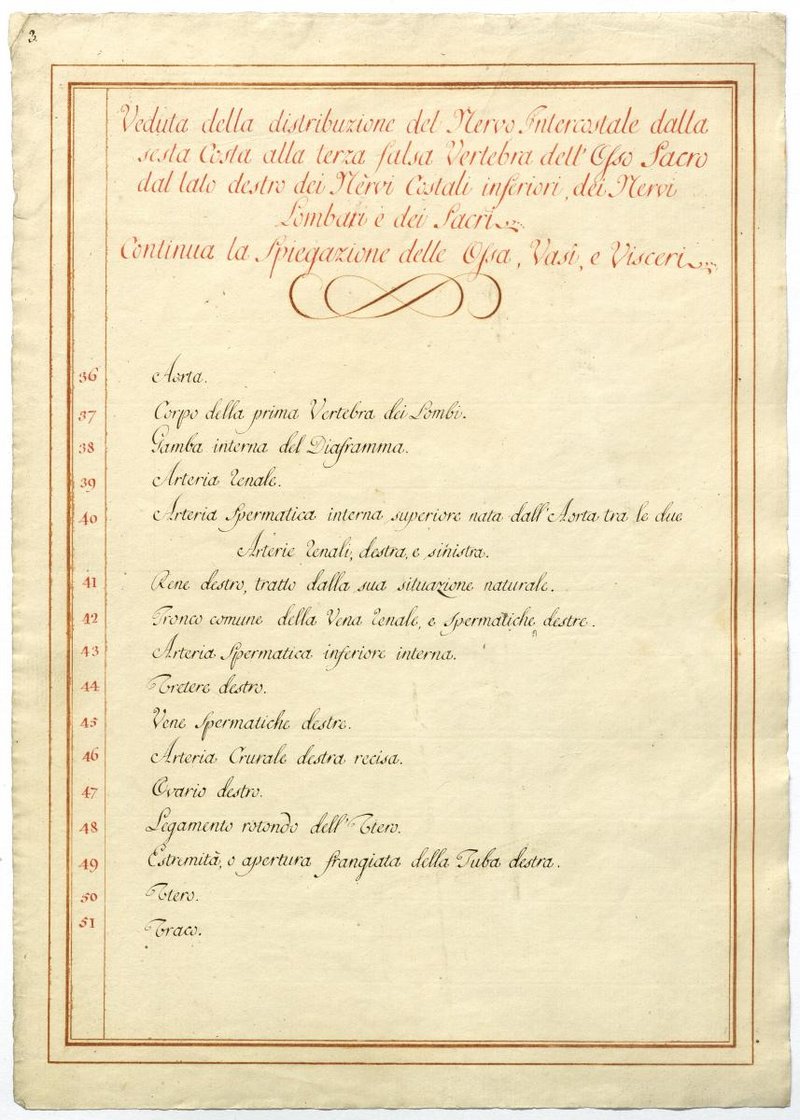 3.
Veduta della distribuzione del Nervo Intercostale dalla
sesta Costa alla terza falsa Vertebra dell'Osso Sacro
dal lato destro dei Nervi Costali inferiori, dei Nervi
Lombari e dei Sacri
Continua la Spiegazione delle Ossa, Vasi, e Visceri
36 Aorta.
37 Corpo della prima Vertebra dei Lombi.
38 Gamba interna del Diaframma.
39 Arteria Renale.
40 Arteria Spermatica interna superiore nata dall'Aorta tra le due
Arterie Renali, destra, e sinistra.
41 Rene destro, tratto dalla sua situazione naturale.
42 Tronco comune della Vena Renale, e Spermatiche destre.
43 Arteria Spermatica inferiore interna.
44 Uretere destro.
45 Vene Spermatiche destre.
46 Arteria Crurale destra recisa.
47 Ovario destro.
48 Legamento rotondo dell'Utero.
49 Estremità, o apertura frangiata della Tuba destra.
50 Utero.
51 Uraco.